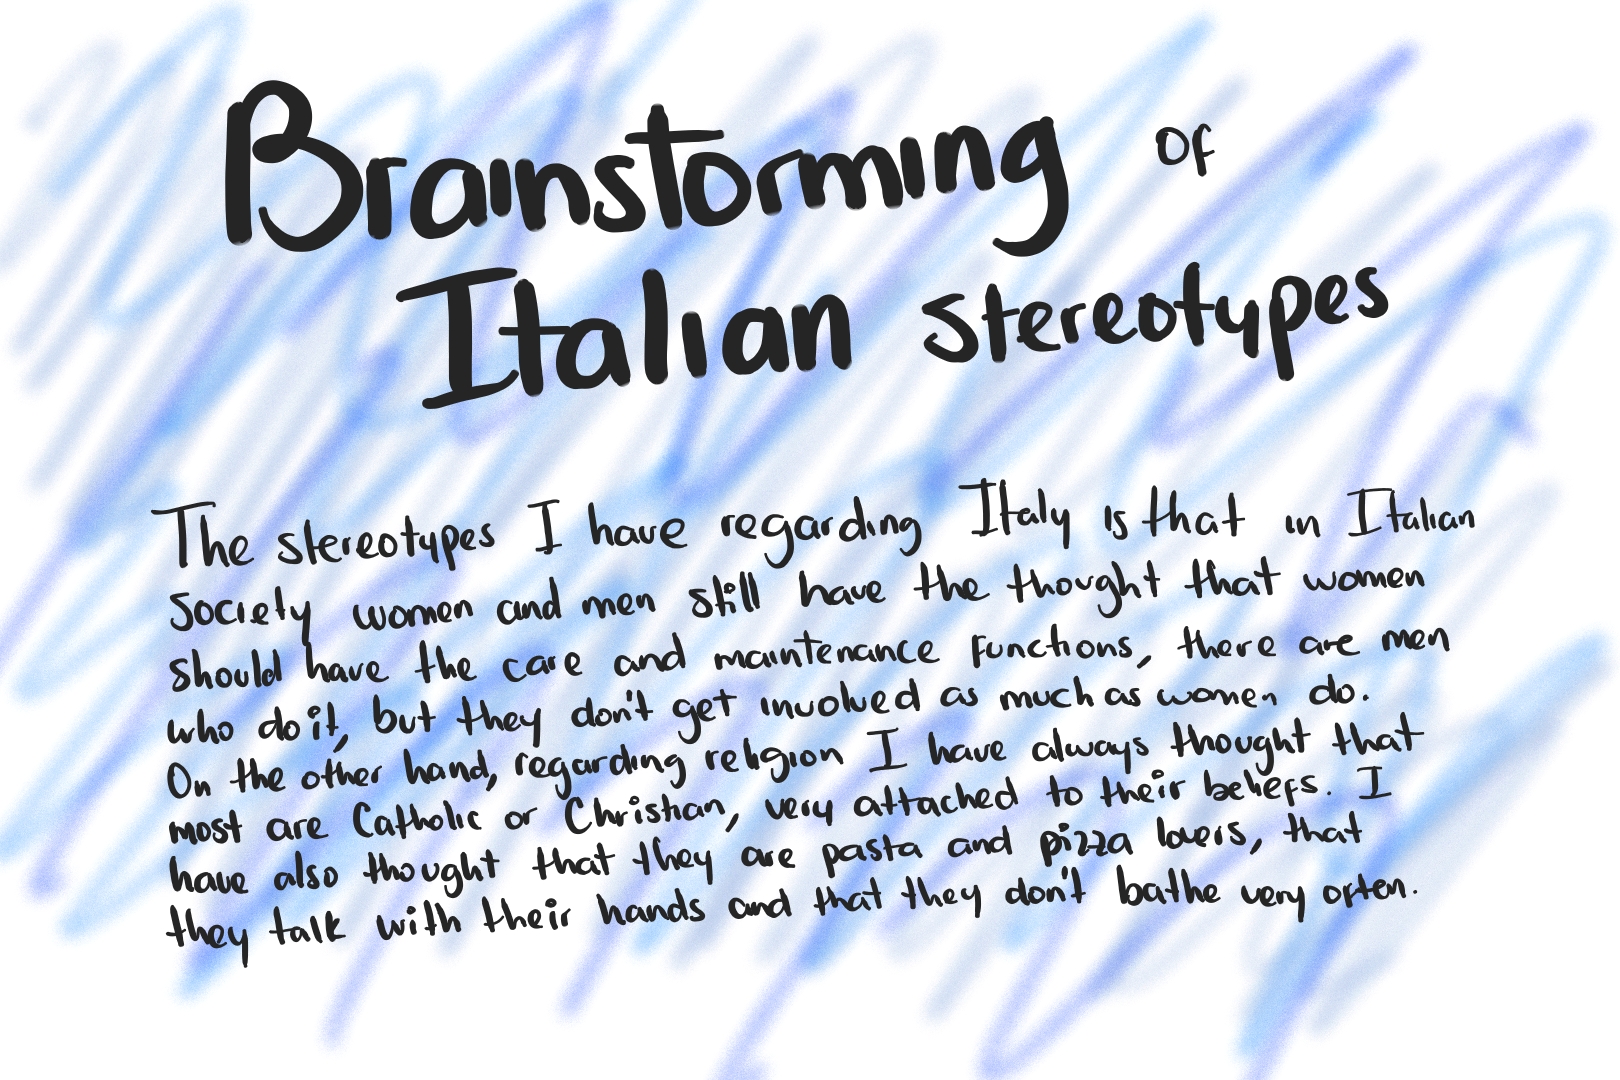 Brainstorming of
Italian stereotypes
The stereotypes I have regarding Italy is that in Italian
Society women and men still have the thought that women
should have the care and maintenance functions, there are men
who do it, but they don't get involved as much as women do.
On the other hand, regarding religion I have always thought that
most are Catholic or Christian, very attached to their beliefs. I
have also thought that they are pasta and pizza lovers, that
they talk with their hands and that they don't bathe very often.